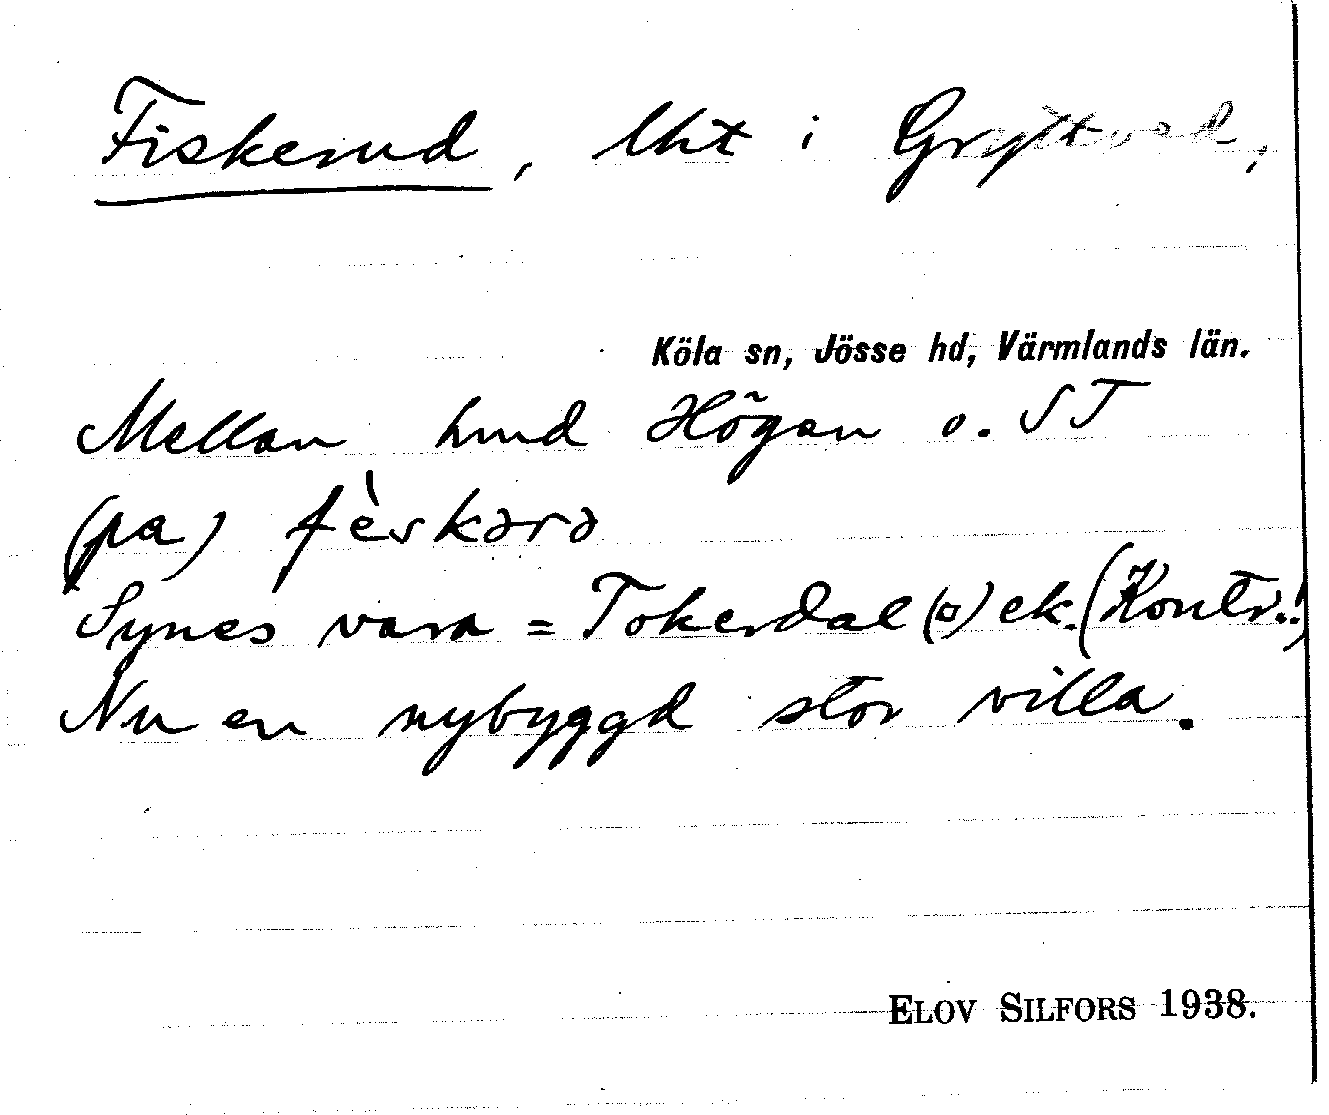 Fiskerud, lht i Gryttved,
Köla sn, Jösse hd, Värmlands län.
Mellan hmd Högan o. ST
(pa) fèskərə
Synes vara = Tokerdal (¤) ek. (Kontr.!)
Nu en nybyggd stor villa.
ELOV SILFORS 1938.